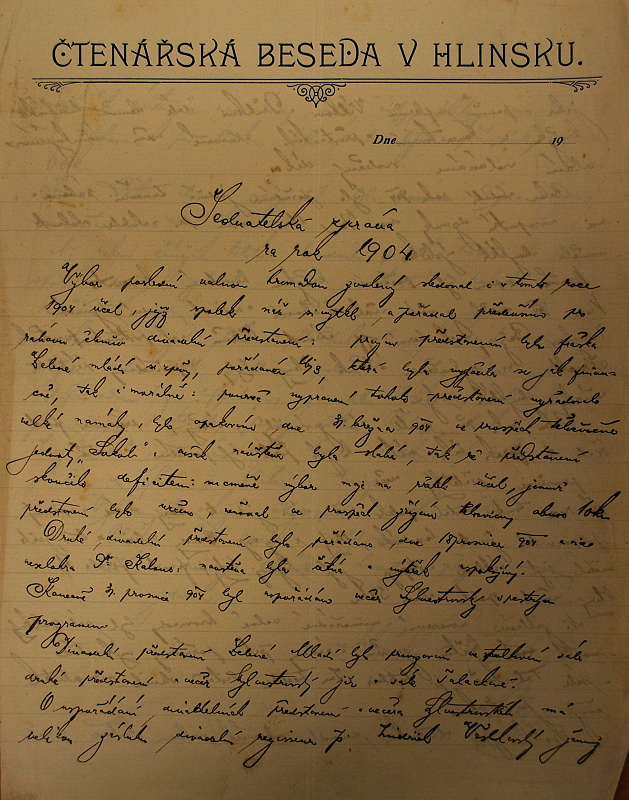 ČTENÁŘSKÁ BESEDA V HLINSKU.
Dne 19
Jednatelská zpráva
za rok 1904.
Výbor poslední valnou hromadou zvolený sledoval i v tomto roce
1904 účel, jejž spolek náš si vytkl, a pořádal především pro
divadelní představení: prvým představením byla fraška
Zelené mládí, pořádaná která byla se jak finan-
čně, tak i morálně: poněvadž vypravení tohoto představení vyžadovalo
velké námahy, bylo opakováno dne 31. března 904 ve prospěch tělocvičné
jednoty "Sokol", avšak návštěva byla slabá, tak že představení
skončilo deficitem: nicméně výbor maje na účel, jemuž
představení bylo určeno, věnoval ve prospěch obnos 10 kor
Druhé divadelní představení bylo pořádáno dne 18 prosince 904 a sice
veselohra Pan: návštěva byla četná a výtěžek uspokojivý.
Konečně 31. prosince 904 byl uspořádán večer Sylvestrovský s pestrým
programem
Divadelní představení Zelené Mládí bylo provozováno ve sále
druhé představení a večer Sylvestrovský již v sále Palackého.
O uspořádání divadelních představení a večera Sylvestrovského má
velikou zásluhu divadelní regisseur p. Jindřich